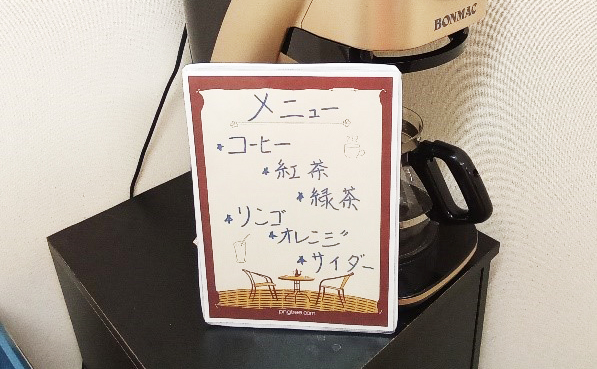 BONMAC
メニュー
★コーヒー
★紅茶
★緑茶
★リンゴ
★オレンジ
★サイダー
pngtree.com